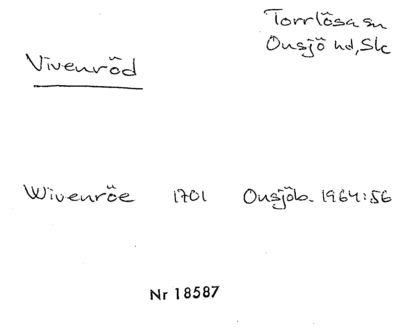 Torrlösa sn
Onsjö hd, Sk
Vivenröd
Wivenröe 1701 Onsjöb. 1964:56
Nr 18587